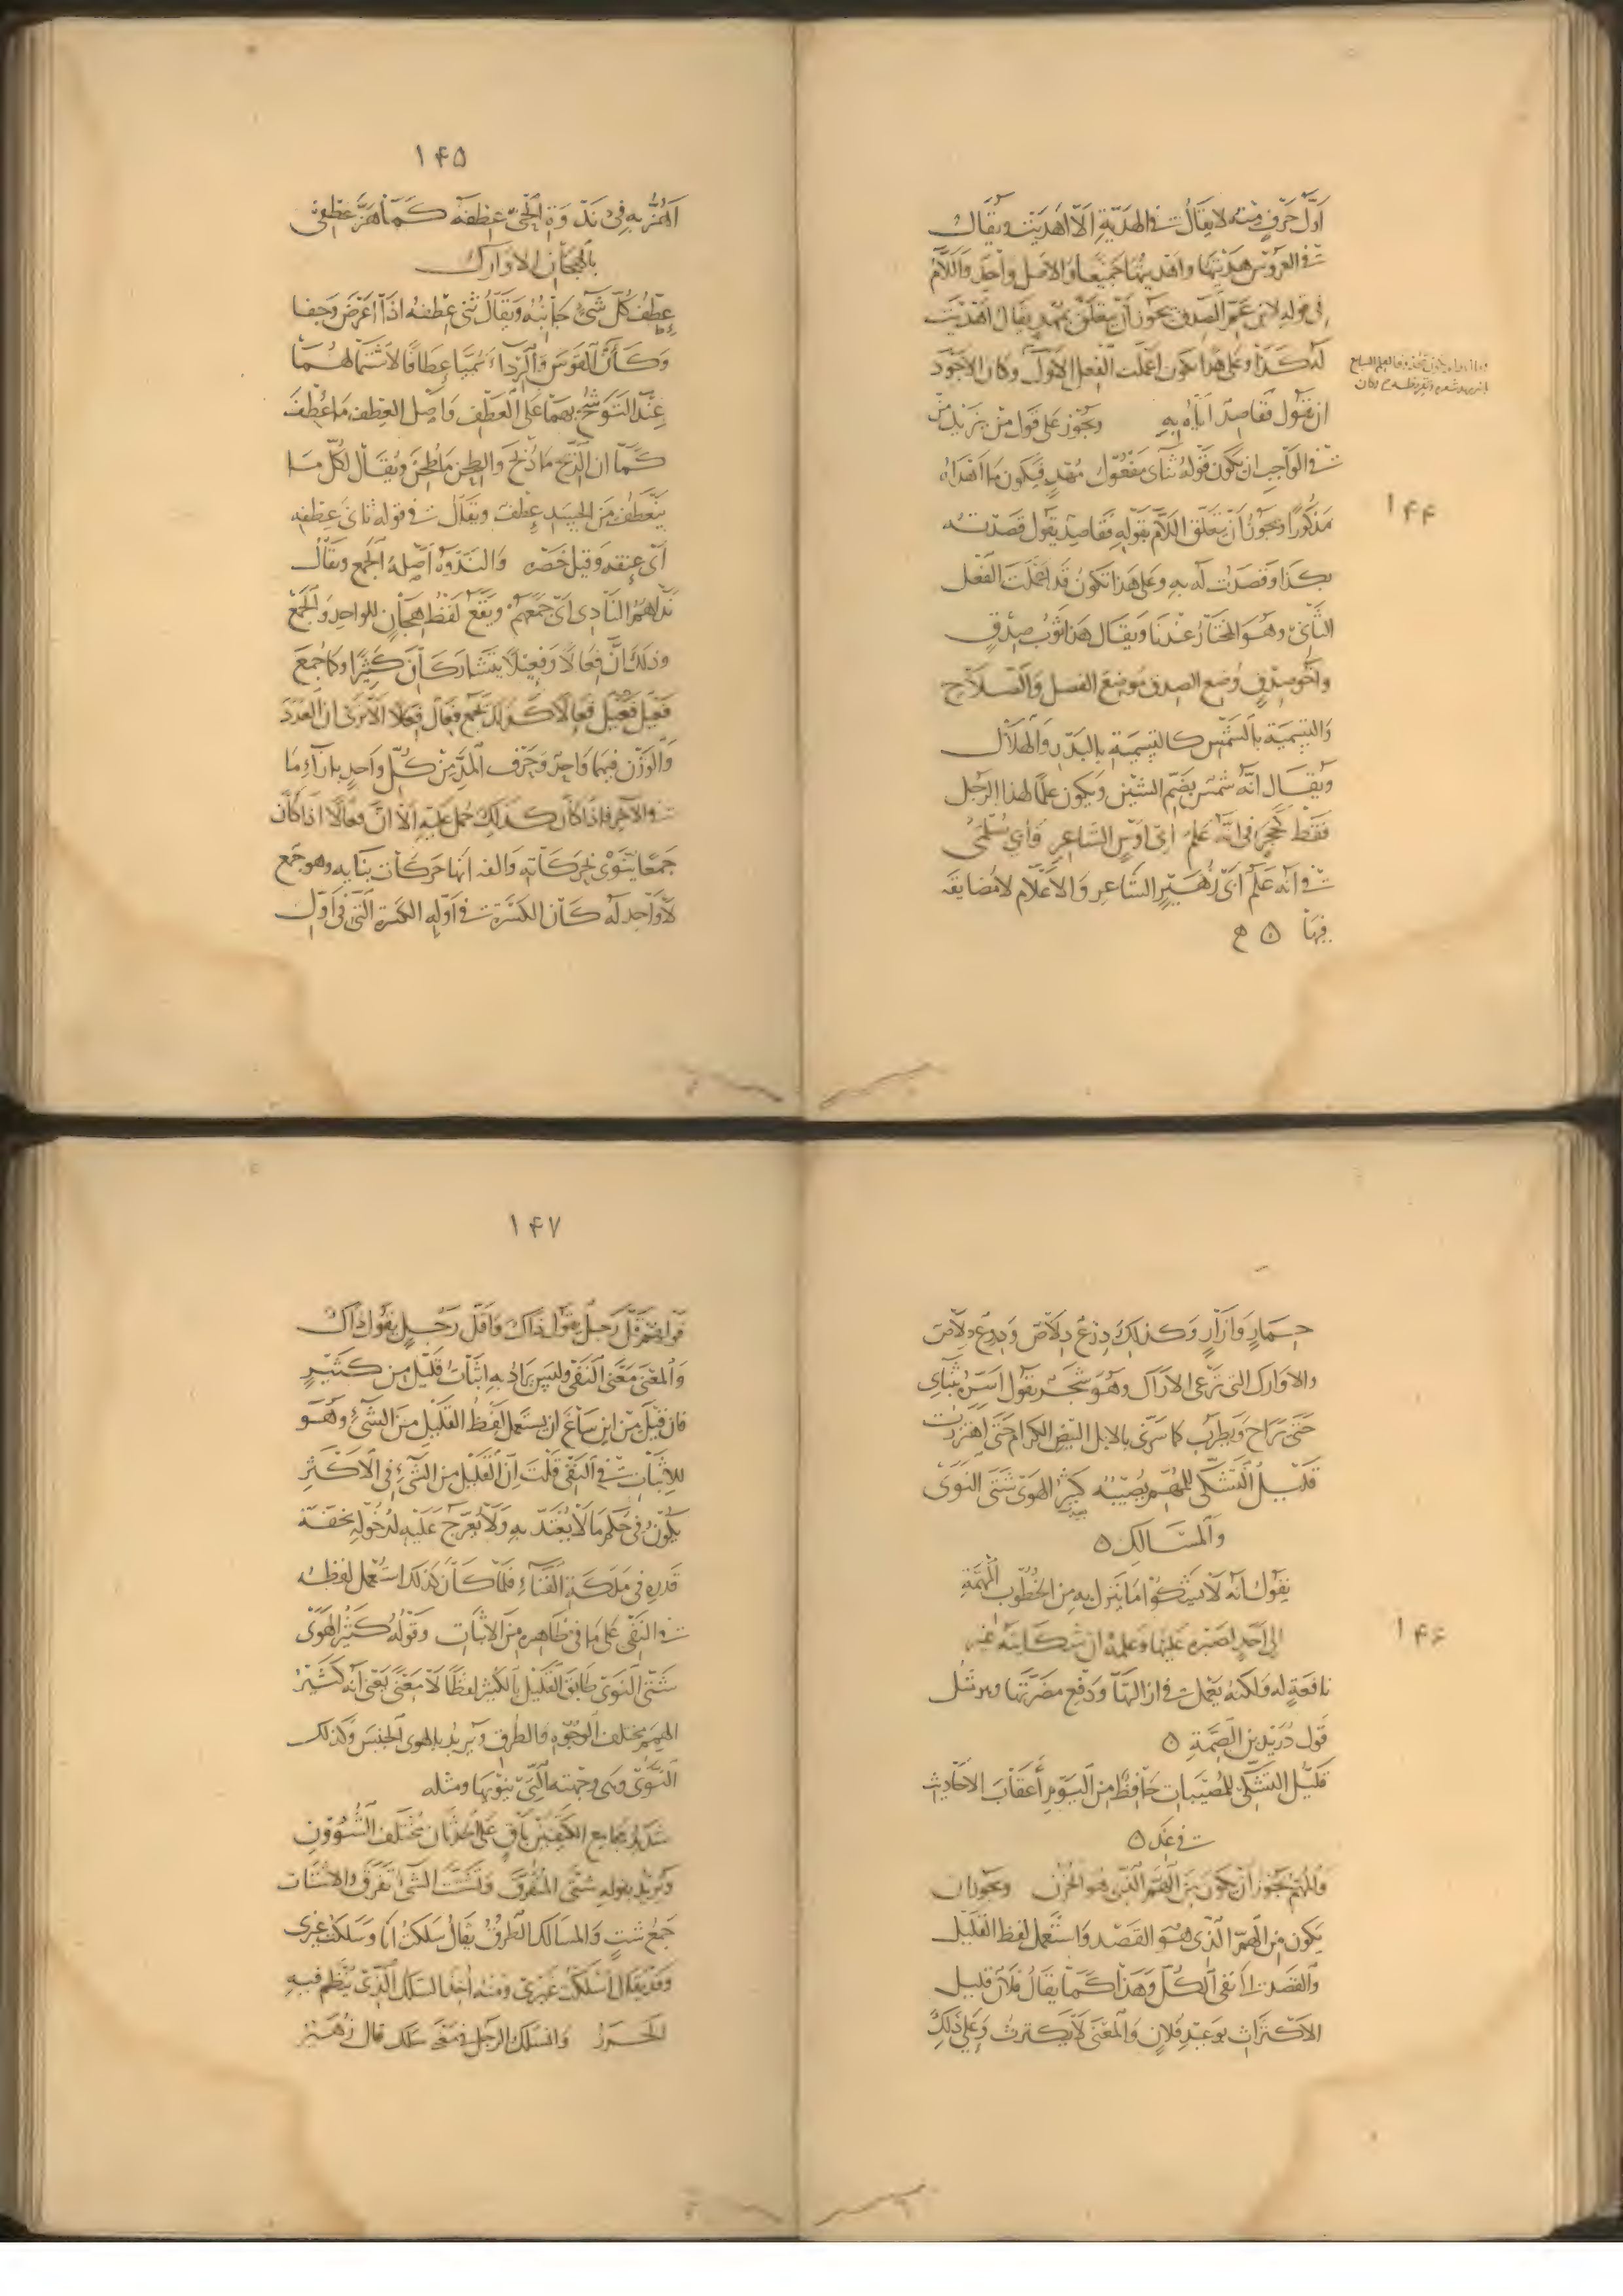 ١٤٤
اول حرف منه لا يقال في الهدية الا اهديت ويقال
في العروس هديتها واهديتها جميعا والاصل واحد واللام
في قوله لابن عم الصدق يجوز ان يتعلق بمهد يقال اهديت
له كذا وعلى هذا يكون اعملت الفعل الاول وكان الاجود
ان تقول فقاصد اياه به ويجوز على قول من يزيد من
في الواجب ان يكون قوله ثناى مفعول مهد فيكون ما اهداه
مذكورا ويجوز ان يتعلق اللام بقوله فقاصد يقول قصدته
بكذا وقصدت له به وعلى هذا تكون قد اعملت الفعل
الثاني وهو المختار عندنا ويقال هذا ثوب صدق
واخو صدق وضع الصدق موضع الفضل والصلاح
والتسمية بالشمس كالتسمية بالبدر والهلال
ويقال انه شمس بضم الشين ويكون علما لهذا الرجل
فقط كحجر في انه علم ابي اوس الشاعر وابي سلمى
في انه علم ابي زهير الشاعر والاعلام لا مضايقة
فيها ۵
١٤٥
اهز به في ندوة الحي عطفه كما هز عطفي
بالهجان الاوارك
عطف كل شيء جانبه ويقال ثنى عطفه اذا اعرض وجفا
وكأن القوس والرداء سميا عطافا لاشتمالهما
عند التوشح بهما على العطف واصل العطف ما عطف
كما ان الذبح ما ذبح والطحن ما طحن ويقال لكل ما
ينعطف من الجسد عطف ويقال في قوله ثاني عطفه
اى عنقه وقيل خصره والندوة اصله الجمع ويقال
نداهم النادى اى جمعهم ويقع لفظ هجان للواحد والجمع
وذلك ان فعالا وفعيلا يتشاركان كثيرا وكما جمع
فعيل فعيل فعالا كذلك جمع فعال فعالا الا ترى ان العدد
والوزن فيهما واحد وحرف المد من كل واحد بازاء ما
في الآخر فاذا كان كذلك حمل عليه الا ان فعالا اذا كان
جمعا ينوى بحركاته والفه انها حركات بنايه وهو جمع
لا واحد له كأن الكسرة في اوله الكسرة التي في اول
١٤٦
حمار وازار وكذلك درع دلاص وادرع دلاص
والاوارك التي ترعى الاراك وهو شجر يقول اسره بثناي
حتى يراح ويطرب كما سرني بالابل البيض الكرام حتى اهتززت
قليل التشكي للمهم يصيبه كثير الهوى شتى النوى
والمسالك ۵
يقول انه لا يشكو اما ينزل به من الخطوب المهمة
الى احد لصبره عليها وعلمه ان شكايته غير
نافعة له ولكنه يعمل في ازالتها ودفع مضرتها ومثل
قول دريد بن الصمة ۵
قليل التشكي للمصيبات حافظ من اليوم اعقاب الاحاديث
في غد ۵
والمهم يجوز ان يكون من الهم الذي هو الحزن ويجوز ان
يكون من الهم الذي هو القصد واستعمل لفظ القليل
والقصد الى نفى الكل وهذا كما يقال فلان قليل
الاكتراث بوعيد فلان والمعنى لا يكترث وعلى ذلك
١٤٧
قولهم قل رجل يقول ذاك واقل رجل يقول ذاك
والمعنى معنى النفي وليس يراد به اثبات قليل من كثير
فان قيل من اين ساغ ان يستعمل لفظ القليل من الشيء وهو
للاثبات في النفي قلت ان القليل من الشيء في الاكثر
يكون في حكم ما لا يعتد به ولا يعرج عليه لدخوله بخفة
قدره في ملكة الفناء فلما كان كذلك استعمل لفظه
في النفي على ما في ظاهره من الاثبات وقوله كثير الهوى
شتى النوى طابق القليل بالكثير لفظا لا معنى يعني انه كثير
الهمم مختلف الوجوه والطرق ويريد بالهوى الجنس وكذلك
النوى وهي وجهته التي ينويها ومثله
شديد مجامع الكتفين باق على الحدثان مختلف الشؤون
ويريد بقوله شتى المتفرق وتشتت الشيء تفرق والاشتات
جمع شت والمسالك الطرق يقال سلكت انا وسلكت غيري
وقد يقال اسلكت غيري ومنه اخذ السلك الذي ينظم فيه
الخرز وانسلك الرجل في معنى سلك قال زهير